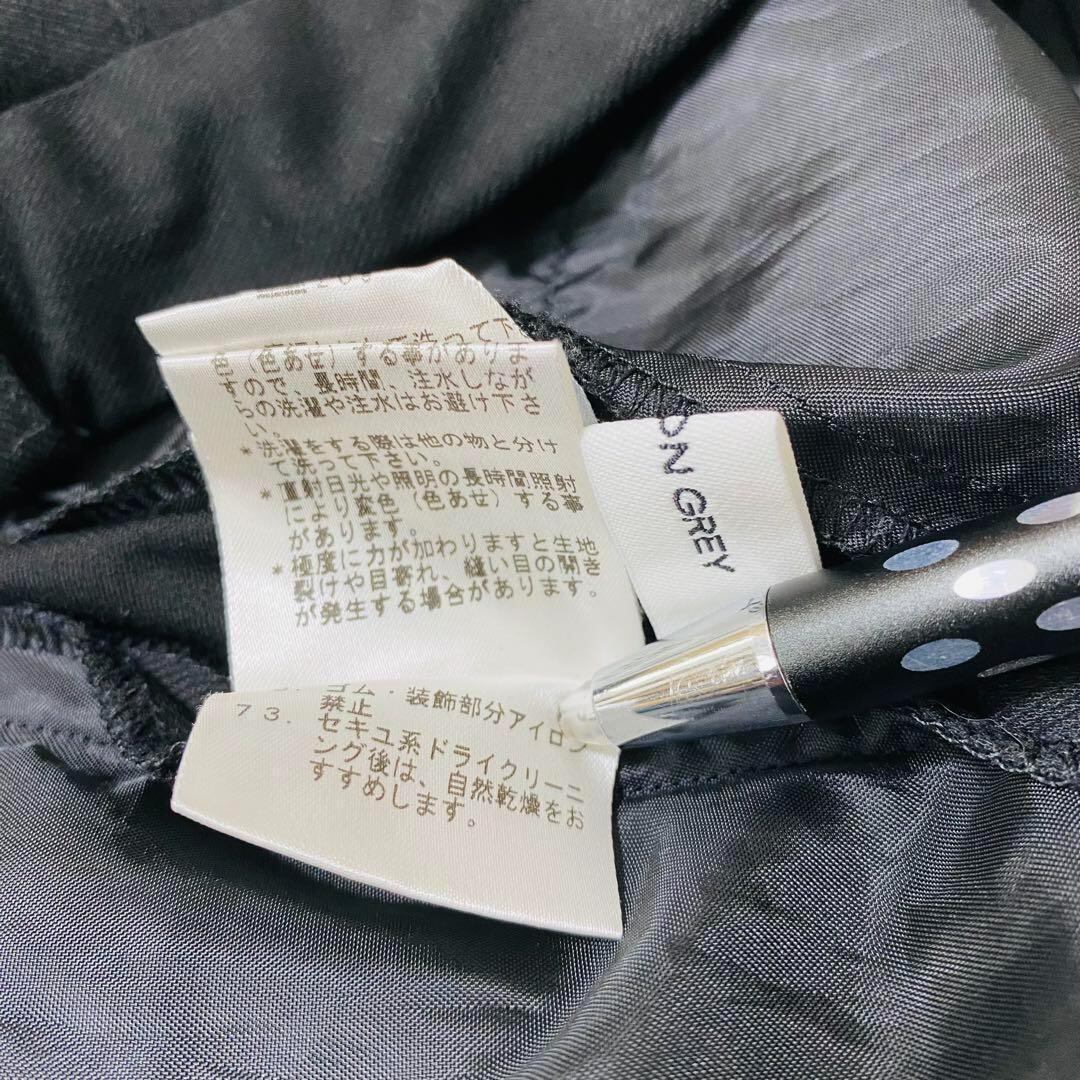 洗って下
色（色あせ）する事がありま
すので、長時間、注水しなが
らの洗濯や注水はお避け下さ
い。
*洗濯をする際は他の物と分け
て洗って下さい。
*直射日光や照明の長時間照射
により変色（色あせ）する事
があります。
*極度に力が加わりますと生地
裂けや目寄れ、縫い目の開き
が発生する場合があります。
ON GREY
ゴム・装飾部分アイロン
禁止
73. セキユ系ドライクリーニ
ング後は、自然乾燥をお
すすめします。